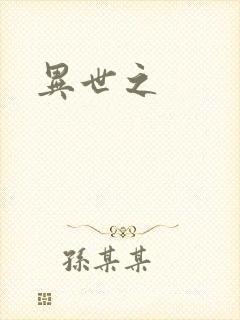 異世之
孫某某